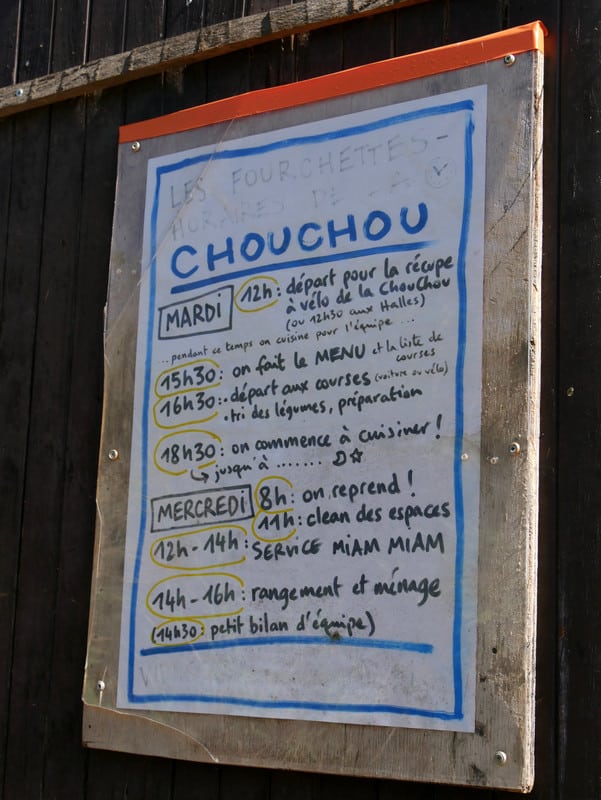 LES FOURCHETTES -
HORAIRES DE LA
CHOUCHOU
MARDI 12h : départ pour la récupe
à vélo de la ChouChou
(ou 12h30 aux Halles)
... pendant ce temps on cuisine pour l'équipe ...
15h30 : on fait le MENU et la liste de
courses
16h30 : • départ aux courses (voiture ou vélo)
• tri des légumes, préparation
18h30 : on commence à cuisiner !
↳ jusqu'à .......
MERCREDI 8h : on reprend !
11h : clean des espaces
12h - 14h : SERVICE MIAM MIAM
14h - 16h : rangement et ménage
(14h30 : petit bilan d'équipe)